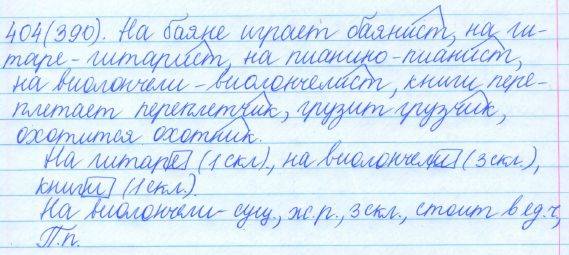 404(390). На баяне играет баянист, на ги-
таре - гитарист, на пианино - пианист,
на виолончели - виолончелист, книги пере-
плетает переплетчик, грузит грузчик,
охотится охотник.
На гитаре (1 скл), на виолончели (3 скл.),
книги (1 скл.).
На виолончели - сущ., ж.р., 3 скл., стоит в ед.ч,
П.п.